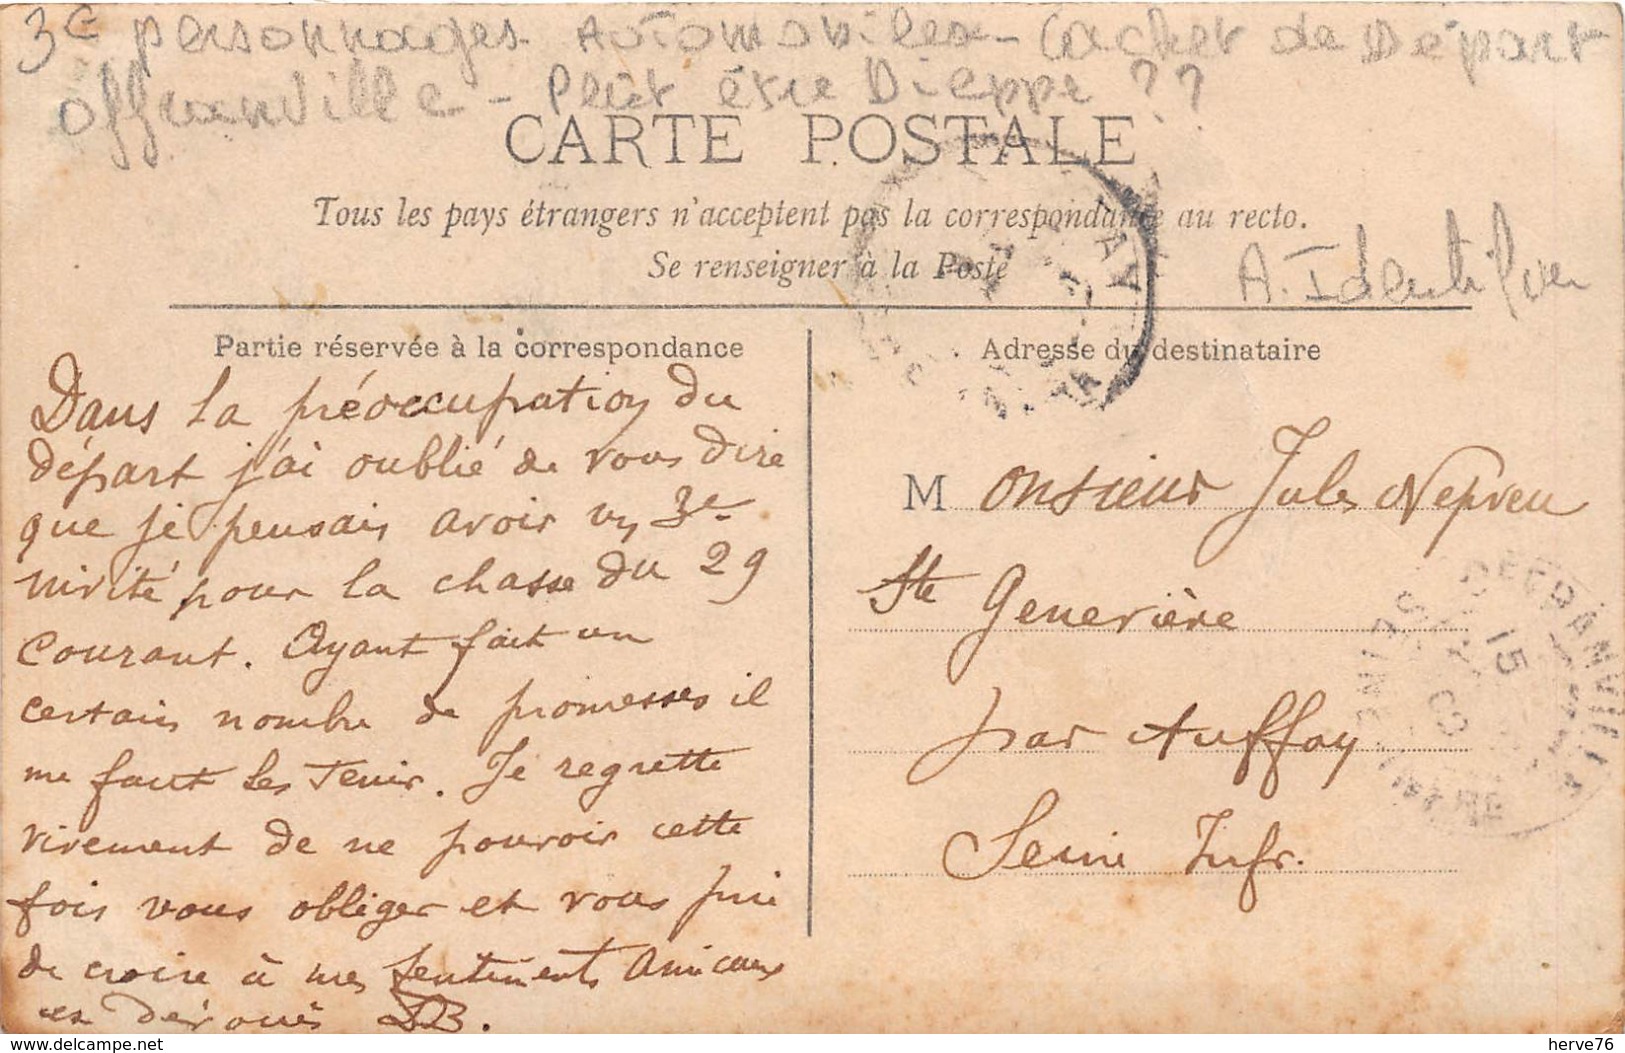 3e personnages. Automobiles - Cachet de Départ
Offranville - Peut être Dieppe ??
CARTE POSTALE
Tous les pays étrangers n'acceptent pas la correspondance au recto.
Se renseigner à la Poste
A. Identifier
Partie réservée à la correspondance
Adresse du destinataire
Dans la préoccupation du
départ j'ai oublié de vous dire
que je pensais avoir un 3e
invité pour la chasse du 29
courant. Ayant fait un
certain nombre de promesses il
me faut les tenir. Je regrette
vivement de ne pouvoir cette
fois vous obliger et vous prie
de croire à mes sentiments amicaux
et dévoués
Monsieur Jules Nepveu
Ste Geneviève
par Auffay
Seine Infr.
OFFRANVILLE
15
09
SEINE INFRE
delcampe.net
herve76